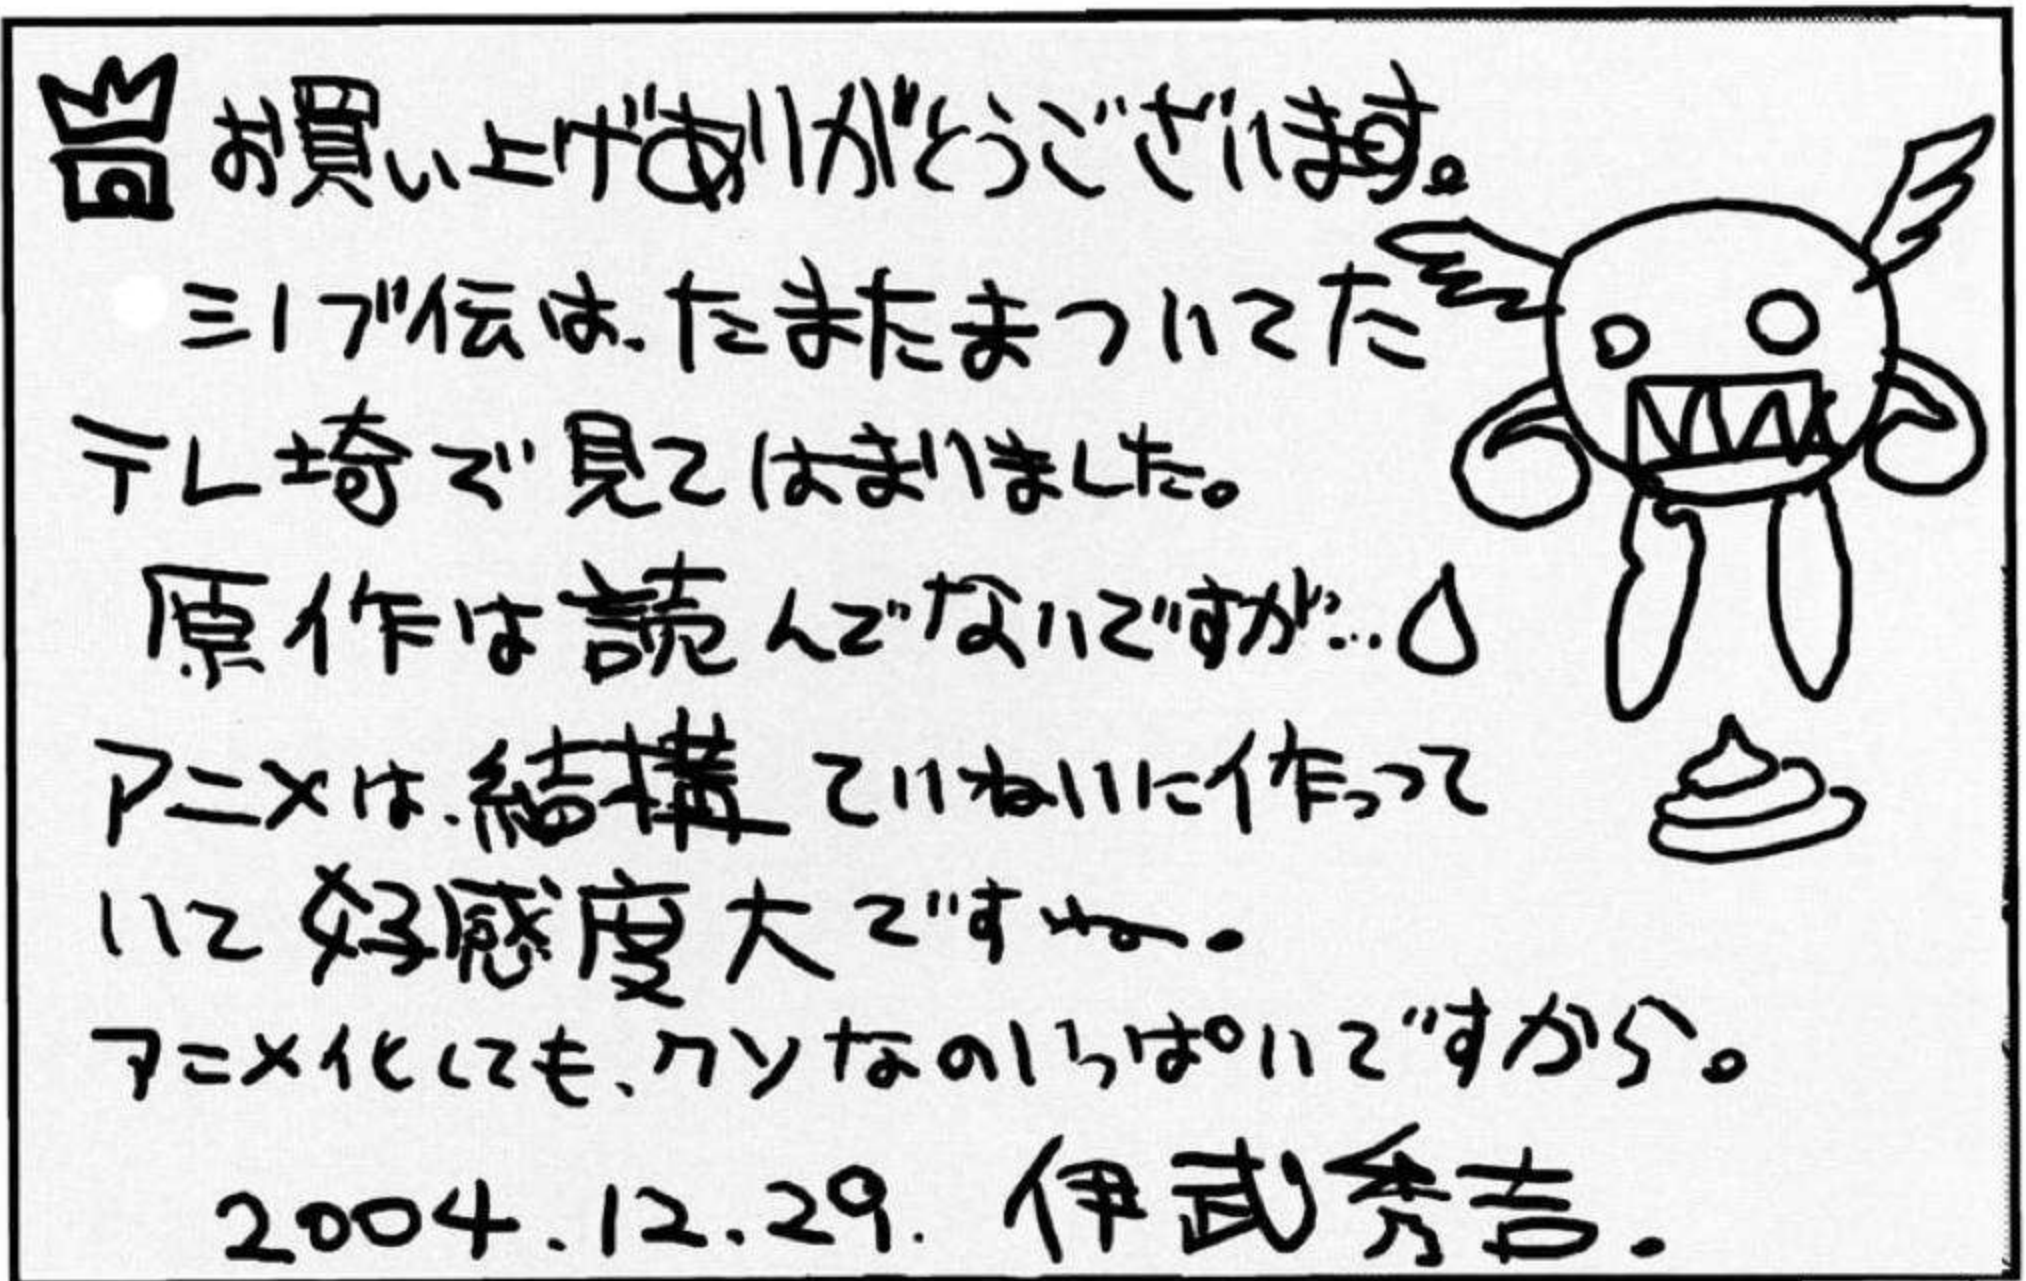 お買い上げありがとうございます。
ミノブ伝は、たまたまついてた
テレ埼で見てはまりました。
原作は読んでないですが…
アニメは、結構ていねいに作って
いて好感度大ですね。
アニメ化しても、クソなのいっぱいですから。
2004.12.29. 伊武秀吉.